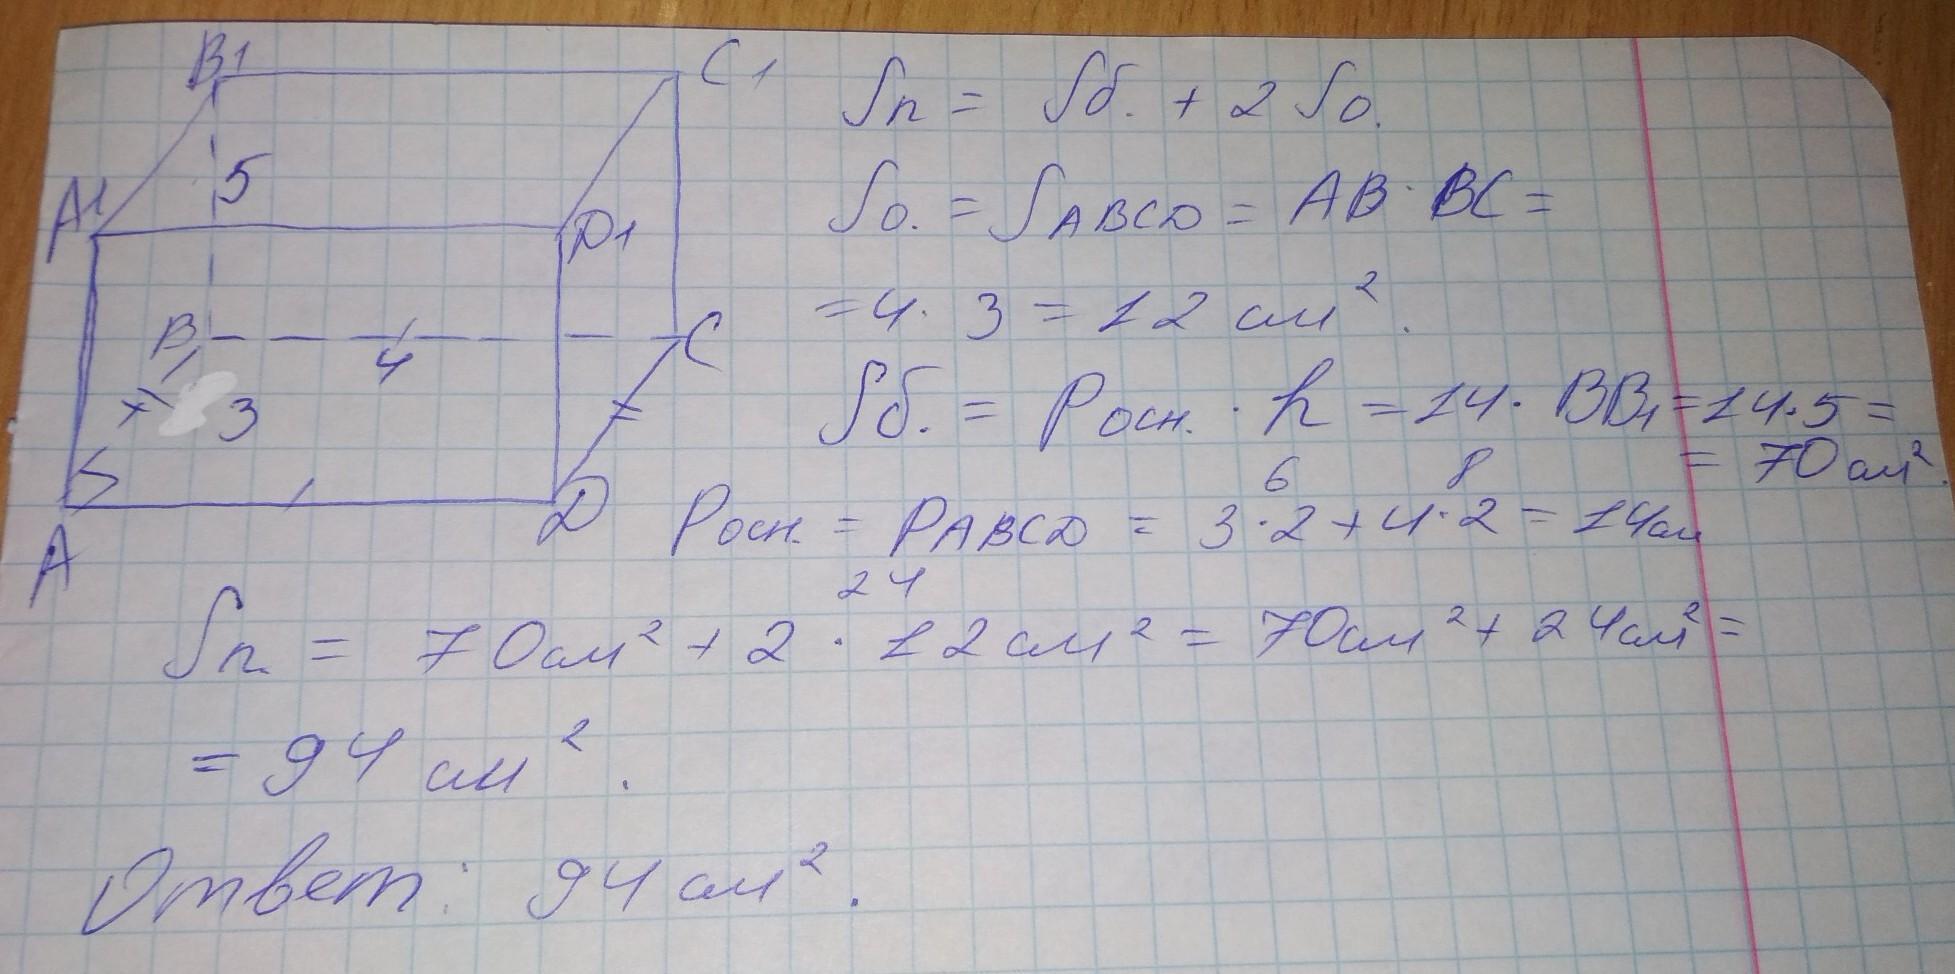 B1
C1
5
A1
D1
B
4
C
3
A
D
Sп = Sб. + 2 Sо.
Sо. = SABCD = AB · BC =
= 4 · 3 = 12 см².
Sб. = Pосн. · h = 14 · BB₁ = 14 · 5 =
= 70 см².
6 8
Pосн. = PABCD = 3 · 2 + 4 · 2 = 14см
24
Sп. = 70см² + 2 · 12см² = 70см² + 24см² =
= 94 см².
Ответ: 94 см².